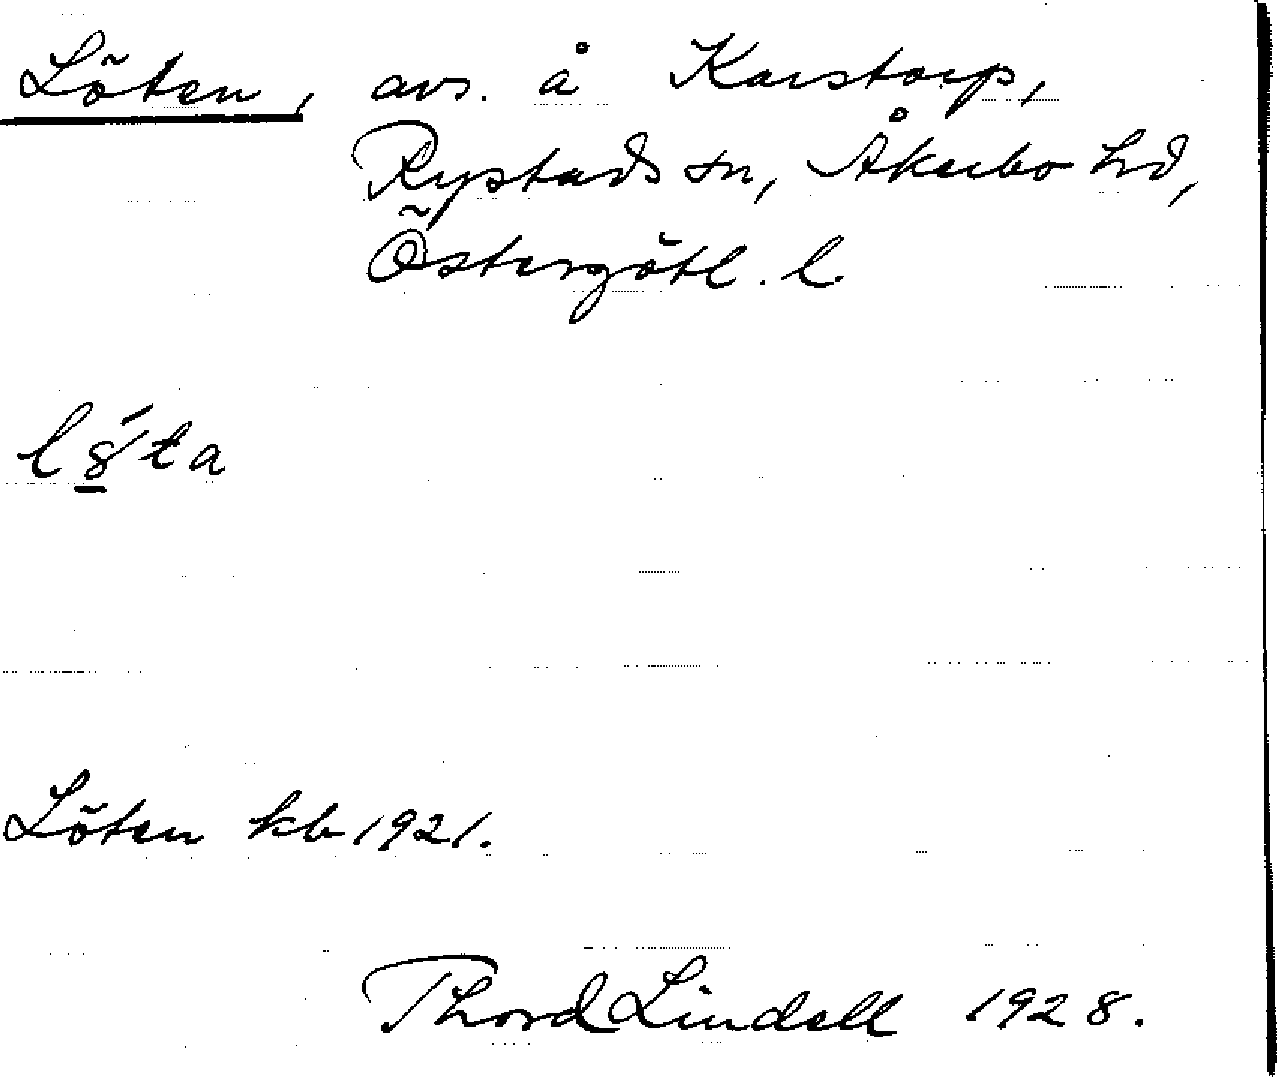 Löten, avs. å Karstorp,
Rystads sn, Åkerbo hd,
Östergötl. l.
Löten kb 1921.
Thord Lindell 1928.